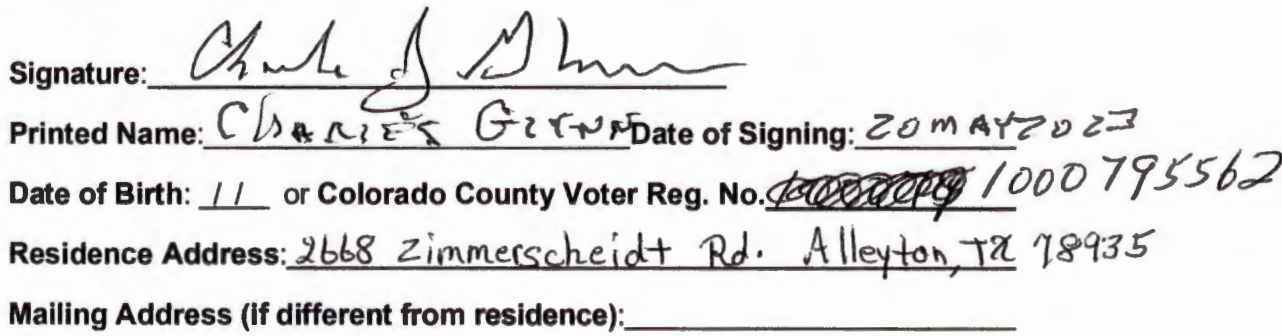 Signature:
Printed Name: Charles Date of Signing: 20 MAY 2023
Date of Birth: / / or Colorado County Voter Reg. No. 1000795562
Residence Address: 2668 Zimmerscheidt Rd. Alleyton, TX 78935
Mailing Address (if different from residence):